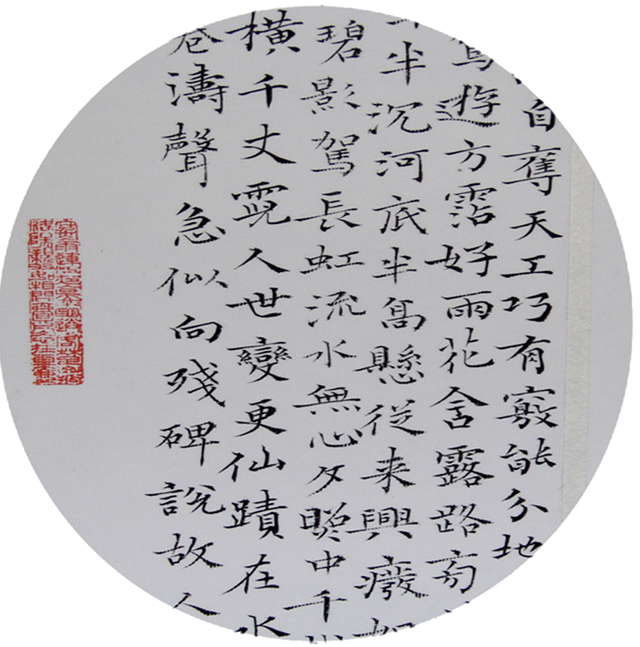 自奪天工巧有竅能分地
遊方霑好雨花含露路旁
半沉河底半高懸從来興癈如
碧影駕長虹流水無心夕照中千
橫千丈霓人世變更仙蹟在水
卷濤聲急似向殘碑說故人